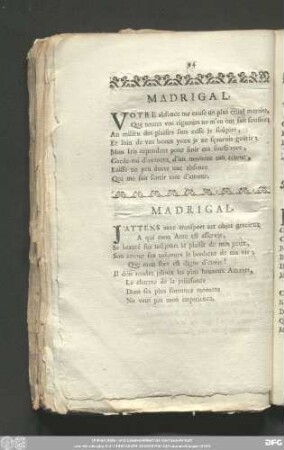 94
MADRIGAL
VOTRE absence me cause un plus cruel martire,
Que toutes vos rigueurs ne m'en ont fait
Au milieu des plaisirs sans cesse je soupire,
Et loin de vos beaux yeux je ne sçaurois guérir;
Mais Iris cependant pour finir ma souffrance,
Garde-toi d'avancer, d'un moment ton retour,
Laisse un peu durer une absence
Qui me fait sentir tant d'amour.
MADRIGAL
J'ATTENS avec transport cet objet gracieux
A qui mon Ame est asservie,
Sa beauté fait toûjours le plaisir de mes yeux,
Son amour fait toûjours le bonheur de ma vie;
Que mon sort est digne d'envie!
Il doit rendre jaloux les plus heureux Amans,
Le charme de la jouissance
Dans ses plus fortunez momens
Ne vaut pas mon impatience.
DFG